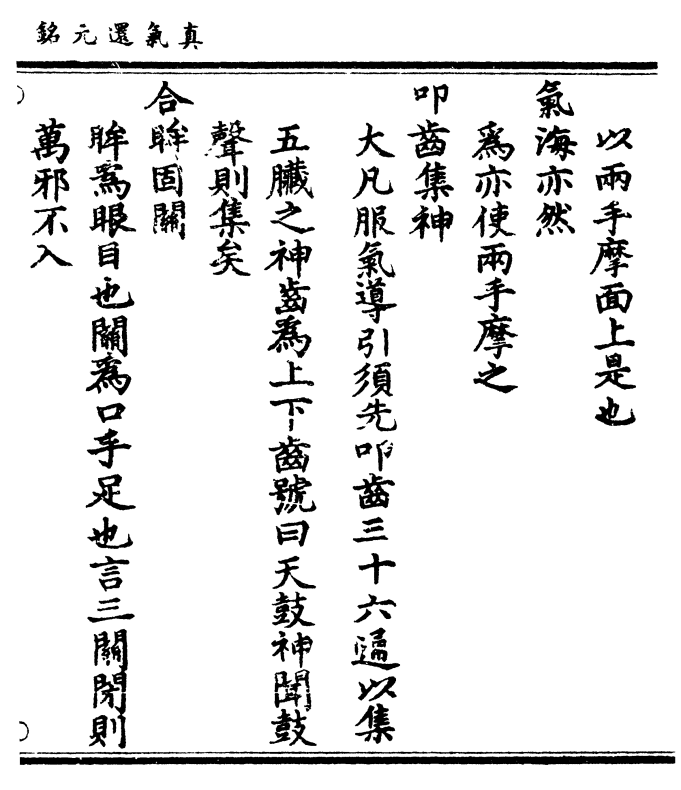 真氣還元銘
以兩手摩面上是也
氣海亦然
爲亦使兩手摩之
叩齒集神
大凡服氣導引須先叩齒三十六遍以集
五臟之神齒爲上下齒號曰天鼓神聞鼓
聲則集矣
合眸固關
眸爲眼目也關爲口手足也言三關閉則
萬邪不入